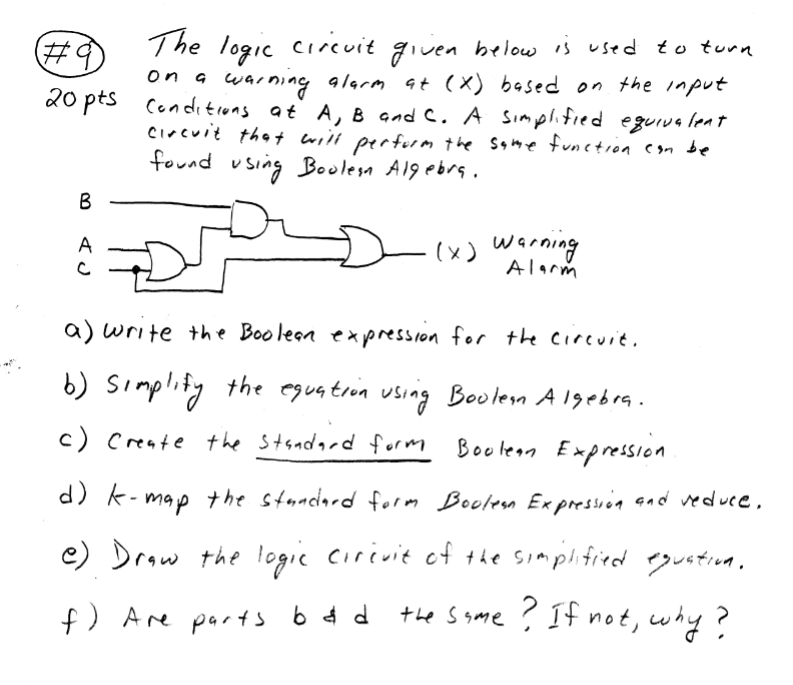 #9 The logic circuit given below is used to turn
on a warning alarm at (X) based on the input
20 pts conditions at A, B and C. A simplified equivalent
circuit that will perform the same function can be
found using Boolean Algebra.
B
A
C
(X) Warning
Alarm
a) Write the Boolean expression for the circuit.
b) Simplify the equation using Boolean Algebra.
c) Create the Standard form Boolean Expression
d) k-map the standard form Boolean Expression and reduce.
e) Draw the logic circuit of the simplified equation.
f) Are parts b & d the same? If not, why?